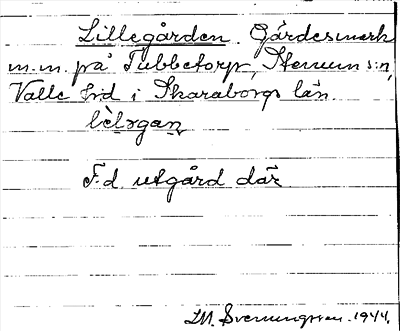 Lillegården. Gärdesmark
m.m. på Tubbetorp, Stenum s:n,
Valle hd i Skaraborgs län.
F.d. utgård där.
M. Svenungsson. 1944.